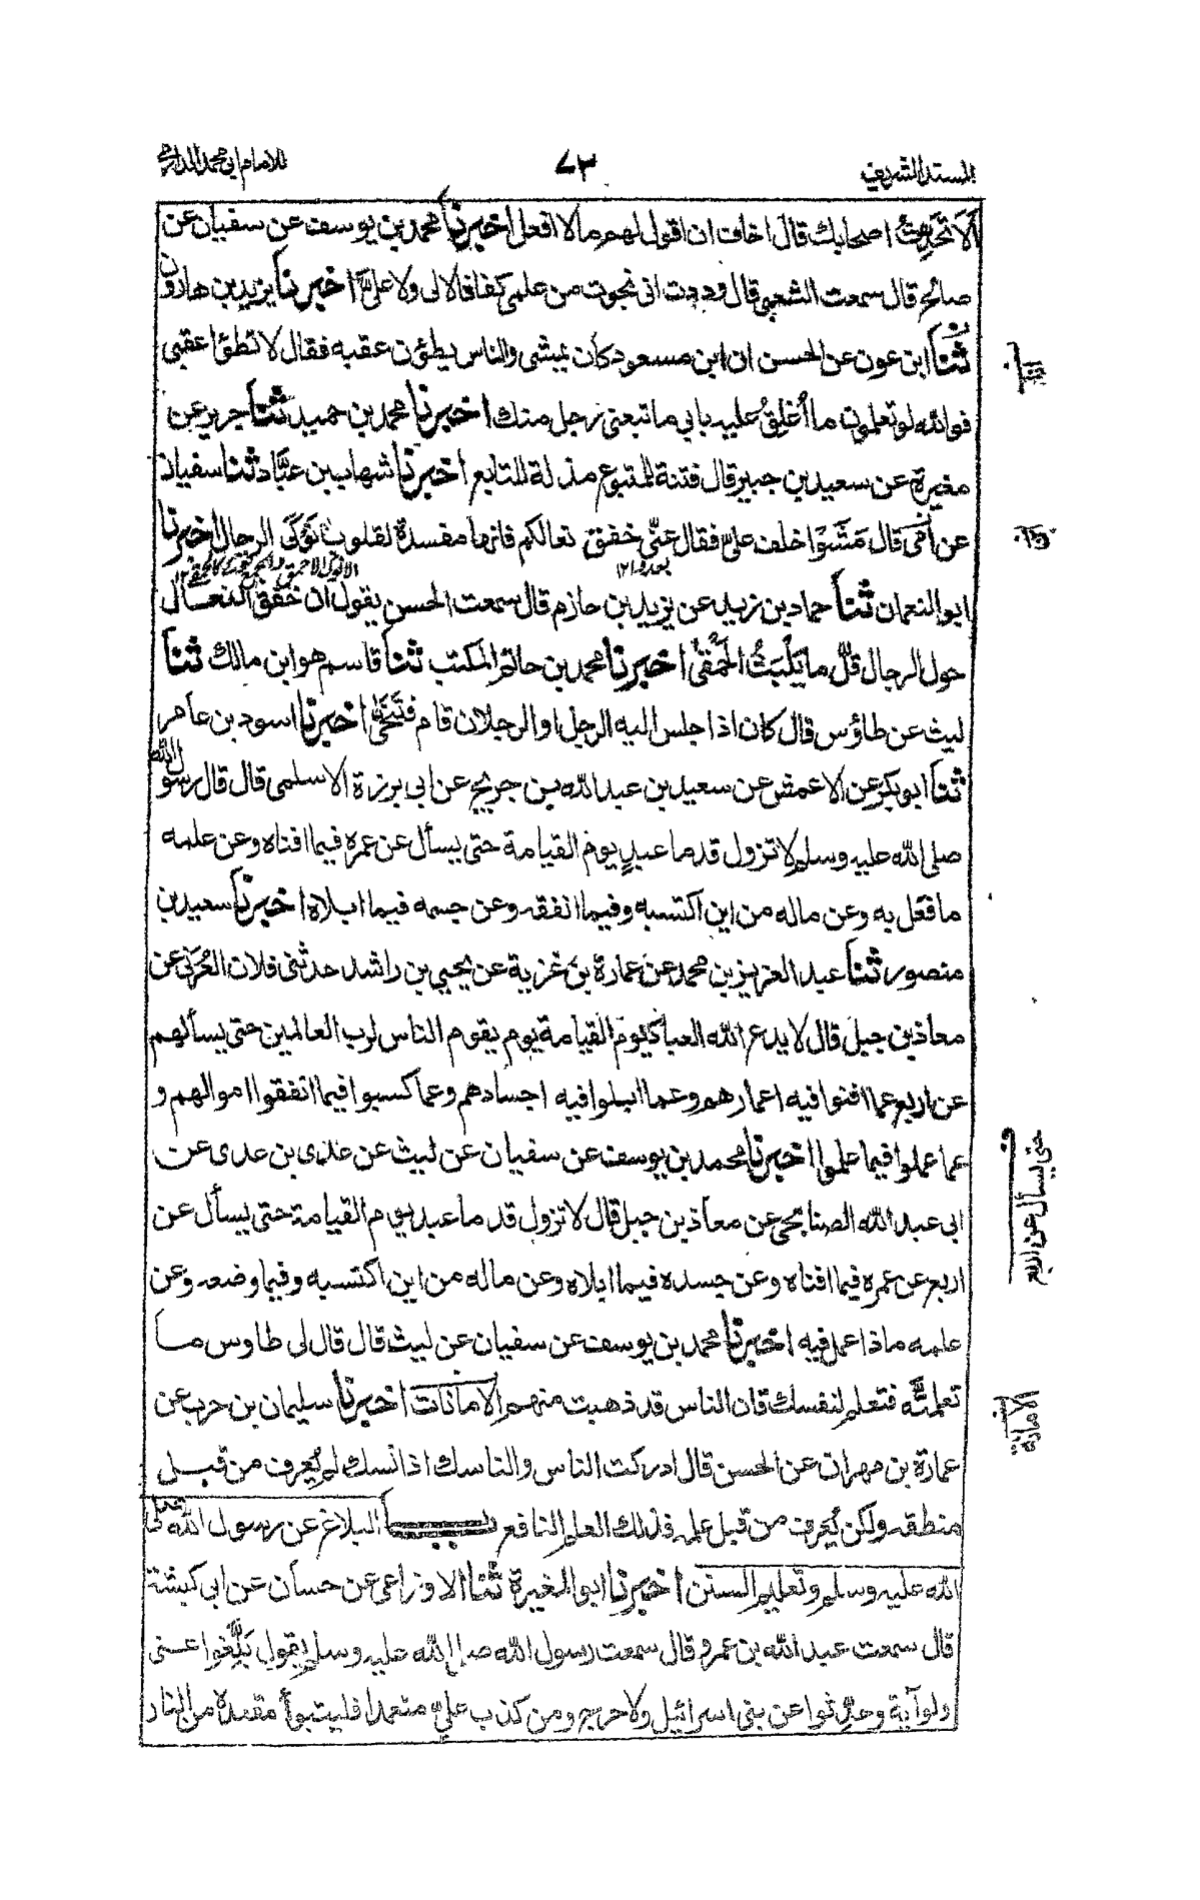 المسند الشريف
٧٣
للامام ابي محمد الدارمي
ألا تحدث اصحابك قال اخاف ان اقول لهم ما لا افعل اخبرنا محمد بن يوسف عن سفيان عن
صالح قال سمعت الشعبي قال وددت اني نجوت من علمي كفافا لا لي ولا عليّ اخبرنا يزيد بن هارون
ثنا ابن عون عن الحسن ان ابن مسعود كان يمشي والناس يطؤن عقبه فقال لا تطؤا عقبي
فوالله لو تعلمون ما أُغلِقُ عليه بابي ما تبعني رجل منك اخبرنا محمد بن حميد ثنا جرير عن
مغيرة عن سعيد بن جبير قال فتنة للمتبوع مذلة للتابع اخبرنا شهاب بن عبّاد ثنا سفيان
عن أمي قال مَشَوا خلف عليّ فقال عنّي خفق نعالكم فانها مفسدة لقلوب نَوْكَى الرجال اخبرنا
ابو النعمان ثنا حماد بن زيد عن يزيد بن حازم قال سمعت الحسن يقول ان خَفْق النعال
حول الرجال قلّ ما يَلْبَثُ الحَمْقىٰ اخبرنا محمد بن حاتم المكتب ثنا قاسم هو ابن مالك ثنا
ليث عن طاؤس قال كان اذا جلس اليه الرجل او الرجلان قام فتَنَحّىٰ اخبرنا اسود بن عامر
ثنا ابو بكر عن الاعمش عن سعيد بن عبد الله بن جريج عن ابي برزة الاسلمي قال قال رسول الله
صلى الله عليه وسلم لا تزول قدما عبدٍ يوم القيامة حتى يسأل عن عمره فيما افناه وعن علمه
ما فعل به وعن ماله من اين اكتسبه وفيما انفقه وعن جسمه فيما ابلاه اخبرنا سعيد بن
منصور ثنا عبد العزيز بن محمد عن عمارة بن غزية عن يحيى بن راشد حدثني فلان العُرَني عن
معاذ بن جبل قال لا يدع الله العباد يوم القيامة يوم يقوم الناس لرب العالمين حتى يسألهم
عن اربع عما افنوا فيه اعمارهم وعما ابلوا فيه اجسادهم وعما كسبوا فيما انفقوا اموالهم و
عما عملوا فيما علموا اخبرنا محمد بن يوسف عن سفيان عن ليث عن عدي بن عدى عن
ابي عبد الله الصنابحي عن معاذ بن جبل قال لا تزول قدما عبد يوم القيامة حتى يسأل عن
اربع عن عمره فيما افناه وعن جسده فيما ابلاه وعن ماله من اين اكتسبه وفيما وضعه وعن
علمه ماذا عمل فيه اخبرنا محمد بن يوسف عن سفيان عن ليث قال قال لي طاوس ما
تعلمتَه فتعلم لنفسك فان الناس قد ذهبت منهم الامانات اخبرنا سليمان بن حرب عن
عمارة بن مهران عن الحسن قال ادركت الناس والناسك اذا نسك لم يُعرف من قبل
منطقه ولكن يُعرف من قبل علمه فذلك العلم النافع باب البلاغ عن رسول الله صلى
الله عليه وسلم وتعليم السنن اخبرنا ابو المغيرة ثنا الاوزاعي عن حسان عن ابي كبشة
قال سمعت عبد الله بن عمرو قال سمعت رسول الله صلى الله عليه وسلم يقول بَلِّغوا عني
ولو آية وحدّثوا عن بني اسرائيل ولا حرج ومن كذب عليّ متعمدا فليتبوأ مقعده من النار
حتى يسأل عن اربع
الامانة